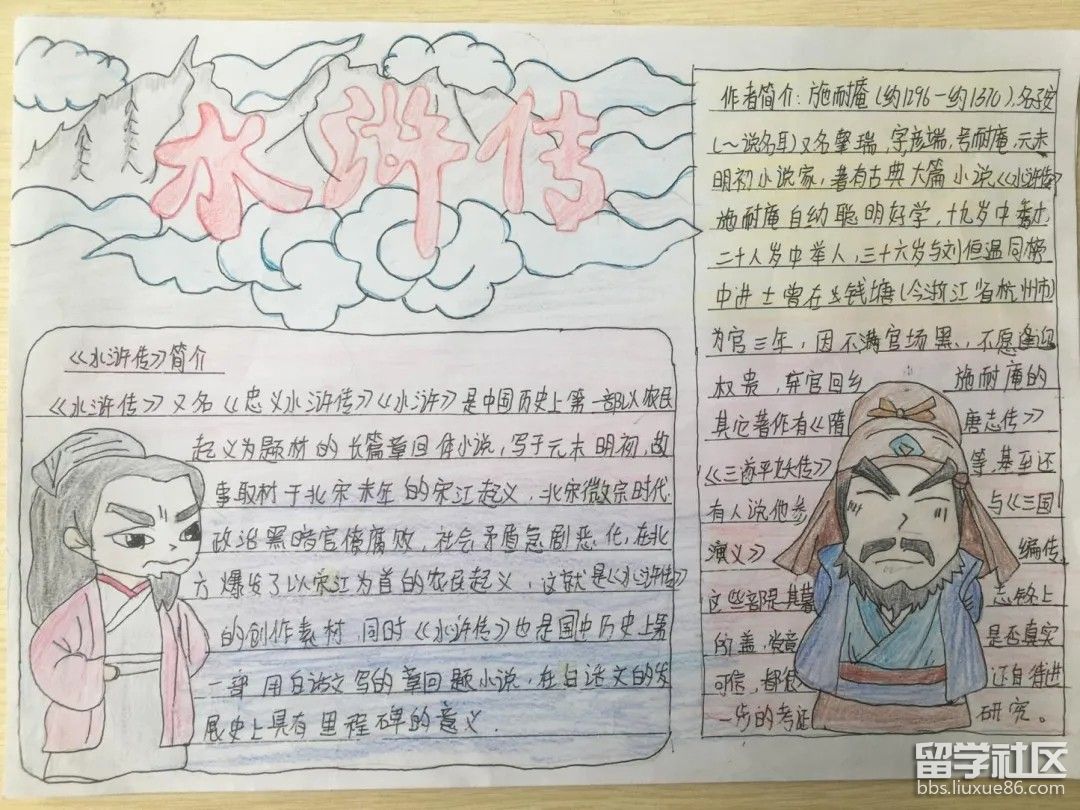 水浒传
《水浒传》简介
《水浒传》又名《忠义水浒传》《水浒》是中国历史上第一部以农民
起义为题材的长篇章回体小说,写于元末明初,故
事取材于北宋末年的宋江起义,北宋微宗时代
政治黑暗官僚腐败,社会矛盾急剧恶化,在北
六爆发了以宋江为首的农民起义,这就是《水浒传》
的创作素材 同时《水浒传》也是国中历史上第
一部用白话文写的章回题小说,在白话文的发
展史上具有里程碑的意义.
作者简介:施耐庵(约1296-约1370).名
(一说名耳)又名肇瑞,字彦端,号耐庵,元末
明初小说家,著有古典大篇小说《水浒传》
施耐庵自幼聪明好学,十九岁中秀才,
二十八岁中举人,三十六岁与刘伯温同榜
中进士曾在钱塘(今浙江省杭州市)
为官三年,因不满官场黑,不愿逢迎
权贵,弃官回乡 施耐庵的
其它著作有《隋 唐志传》
《三遂平妖传》 等,甚至还
有人说他参 与《三国
演义》 编传
这些都是其墓 志铭上
的 是否真实
可信, 还自待进
一步的考证 研究。
留学社区
bbs.liuxue86.com